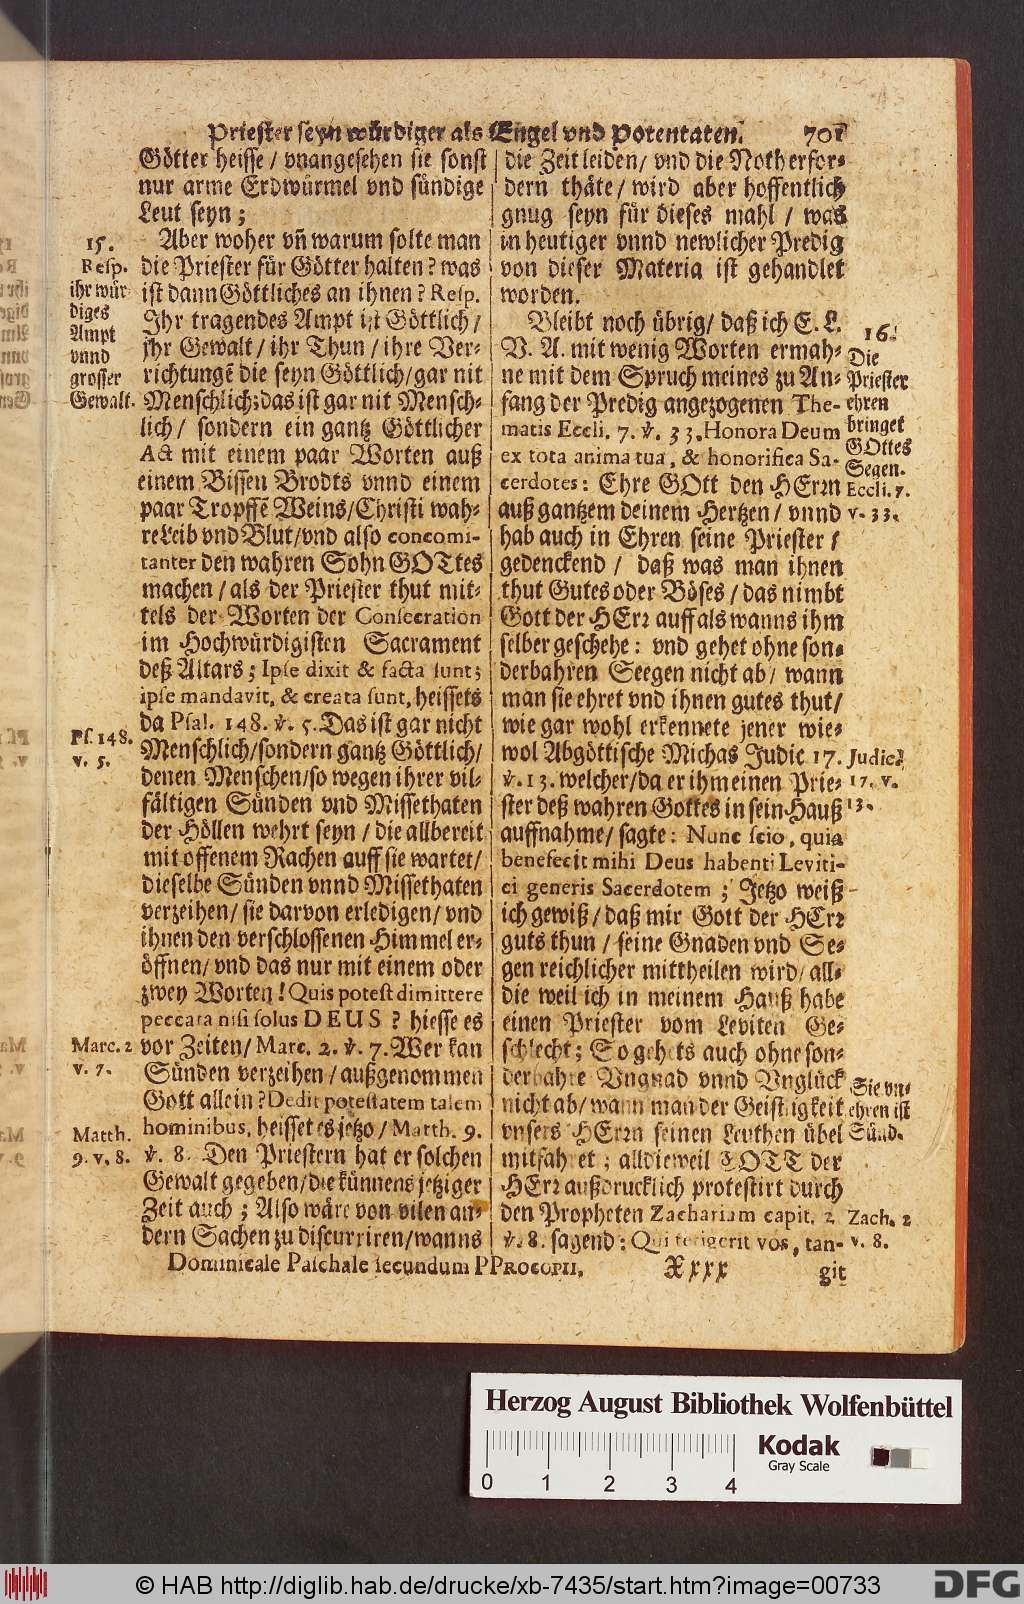 Priester seyn würdiger als Engel vnd Potentaten. 701
Götter heisse / vnangesehen sie sonst
nur arme Erdwürmel vnd sündige
Leut seyn;
15.
Resp.
ihr wür
diges
Ampt
vnnd
grosser
Gewalt.
Aber woher vñ warum solte man
die Priester für Götter halten? was
ist dann Göttliches an ihnen? Resp.
Ihr tragendes Ampt ist Göttlich /
jhr Gewalt / ihr Thun / ihre Ver-
richtungẽ die seyn Göttlich / gar nit
Menschlich; das ist gar nit Mensch-
lich / sondern ein gantz Göttlicher
Act mit einem paar Worten auß
einem Bissen Brodts vnnd einem
paar Tropffẽ Weins / Christi wah-
re Leib vnd Blut / vnd also concomi-
tanter den wahren Sohn GOTtes
machen / als der Priester thut mit-
tels der Worten der Consecration
im Hochwürdigisten Sacrament
deß Altars; Ipse dixit & facta sunt;
ipse mandavit, & creata sunt, heissets
da Psal. 148. ℣. 5. Das ist gar nicht
Ps. 148.
v. 5.
Menschlich / sondern gantz Göttlich /
denen Menschen / so wegen ihrer vil-
fältigen Sünden vnd Missethaten
der Höllen wehrt seyn / die allbereit
mit offenem Rachen auff sie wartet /
dieselbe Sünden vnnd Missethaten
verzeihen / sie darvon erledigen / vnd
ihnen den verschlossenen Himmel er-
öffnen / vnd das nur mit einem oder
zwey Worten! Quis potest dimittere
peccata nisi solus DEUS ? hiesse es
vor Zeiten / Marc. 2. ℣. 7. Wer kan
Marc. 2
v. 7.
Sünden verzeihen / außgenommen
Gott allein? Dedit potestatem talem
hominibus, heisset es jetzo / Matth. 9.
Matth.
9. v. 8.
℣. 8. Den Priestern hat er solchen
Gewalt gegeben / die künnens jetziger
Zeit auch ; Also wäre von vilen an-
dern Sachen zu discurriren / wanns
die Zeit leiden / vnd die Noth erfor-
dern thäte / wird aber hoffentlich
gnug seyn für dieses mahl / was
in heutiger vnnd newlicher Predig
von dieser Materia ist gehandlet
worden.
Bleibt noch übrig / daß ich E. L.
V. A. mit wenig Worten ermah-
ne mit dem Spruch meines zu An-
fang der Predig angezogenen The-
matis Eccli. 7. ℣. 33. Honora Deum
ex tota anima tua, & honorifica Sa-
cerdotes: Ehre GOtt den HErrn
auß gantzem deinem Hertzen / vnnd
hab auch in Ehren seine Priester /
gedenckend / daß was man ihnen
thut Gutes oder Böses / das nimbt
Gott der HErr auff als wanns ihm
selber geschehe: vnd gehet ohne son-
derbahren Seegen nicht ab / wann
man sie ehret vnd ihnen gutes thut /
wie gar wohl erkennete jener wie-
wol Abgöttische Michas Judic 17.
℣. 13. welcher / da er ihm einen Prie-
ster deß wahren Gottes in sein Hauß
auffnahme / sagte: Nunc scio, quia
benefecit mihi Deus habenti Leviti-
ci generis Sacerdotem ; Jetzo weiß
ich gewiß / daß mir Gott der HErr
guts thun / seine Gnaden vnd Se-
gen reichlicher mittheilen wird / all-
die weil ich in meinem Hauß habe
einen Priester vom Leviten Ge-
schlecht; So gehets auch ohne son-
derbahre Vngnad vnnd Vnglück
nicht ab / wann man der Geistligkeit
vnsers HErrn seinen Leuthen übel
mitfahret ; alldieweil GOTT der
HErr außdrucklich protestirt durch
den Propheten Zachariam capit. 2
℣. 8. sagend: Qui tetigerit vos, tan-
16.
Die
Priester
ehren
bringet
GOttes
Segen.
Eccli. 7.
v. 33.
Judic.
17. v.
13.
Sie vn-
ehren ist
Sünd.
Zach. 2
v. 8.
Dominicale Paschale secundum P PROCOPII. Xxxx git
Herzog August Bibliothek Wolfenbüttel
0 1 2 3 4
Kodak
Gray Scale
© HAB http://diglib.hab.de/drucke/xb-7435/start.htm?image=00733
DFG